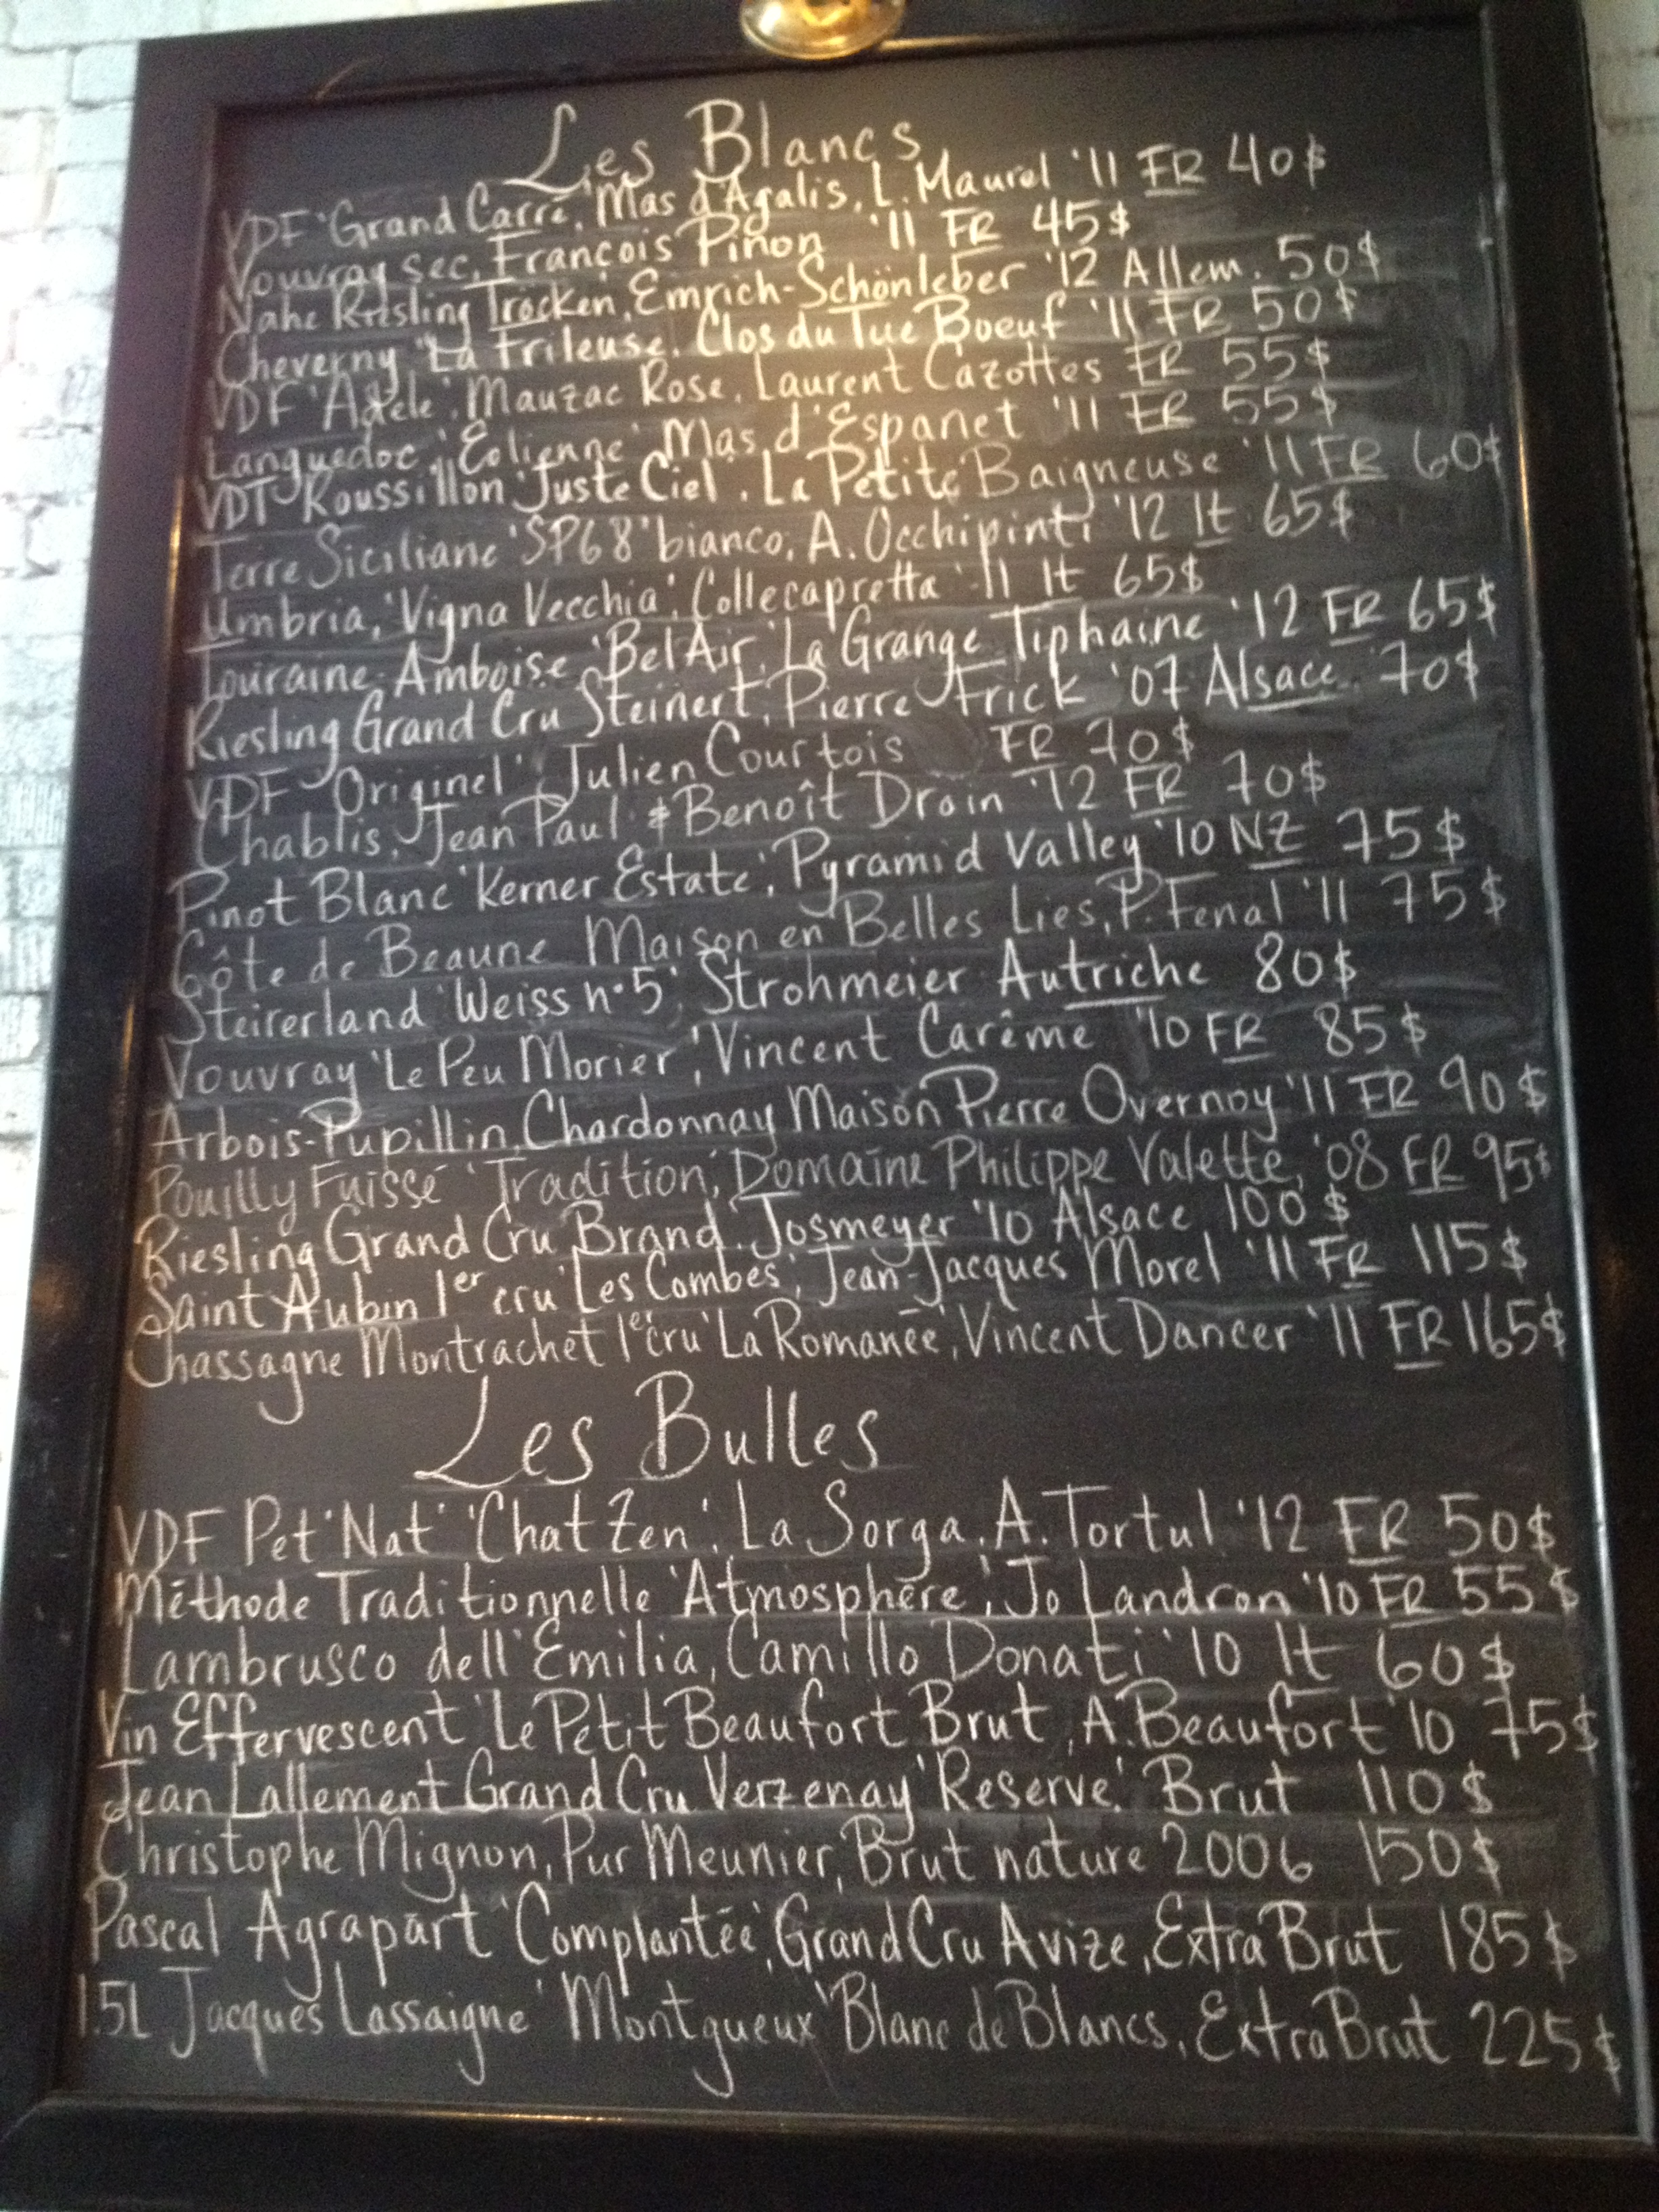 Les Blancs
VDF 'Grand Carré', Mas d'Agalis, L. Maurel '11 FR 40$
Vouvray sec, François Pinon '11 FR 45$
Nahe Riesling Trocken, Emrich-Schönleber '12 Allem. 50$
Cheverny 'La Frileuse', Clos du Tue Boeuf '11 FR 50$
VDF 'Adèle', Mauzac Rose, Laurent Cazottes FR 55$
Languedoc 'Eolienne' Mas d'Espanet '11 FR 55$
VDT Roussillon 'Juste Ciel', La Petite Baigneuse '11 FR 60$
Terre Siciliane 'SP68' bianco, A. Occhipinti '12 It 65$
Umbria, 'Vigna Vecchia', Collecapretta '11 It 65$
Touraine-Amboise 'Bel Air', La Grange Tiphaine '12 FR 65$
Riesling Grand Cru Steinert, Pierre Frick '07 Alsace 70$
VDF 'Originel', Julien Courtois FR 70$
Chablis, Jean Paul & Benoît Droin '12 FR 70$
Pinot Blanc 'Kerner Estate', Pyramid Valley '10 NZ 75$
Côte de Beaune Maison en Belles Lies, P. Fenal '11 75$
Steirerland 'Weiss n°5', Strohmeier Autriche 80$
Vouvray 'Le Peu Morier', Vincent Carême '10 FR 85$
Arbois-Pupillin, Chardonnay Maison Pierre Overnoy '11 FR 90$
Pouilly Fuissé 'Tradition', Domaine Philippe Valette, '08 FR 95$
Riesling Grand Cru Brand, Josmeyer '10 Alsace 100$
Saint Aubin 1er cru 'Les Combes', Jean-Jacques Morel '11 FR 115$
Chassagne Montrachet 1er cru 'La Romanée', Vincent Dancer '11 FR 165$
Les Bulles
VDF Pet 'Nat' 'Chat Zen', La Sorga, A. Tortul '12 FR 50$
Méthode Traditionnelle 'Atmosphère', Jo Landron '10 FR 55$
Lambrusco dell'Emilia, Camillo Donati '10 It 60$
Vin Effervescent 'Le Petit Beaufort' Brut, A. Beaufort '10 75$
Jean Lallement Grand Cru Verzenay 'Reserve' Brut 110$
Christophe Mignon, Pur Meunier, Brut nature 2006 150$
Pascal Agrapart 'Complantée', Grand Cru Avize, Extra Brut 185$
1.5L Jacques Lassaigne 'Montgueux' Blanc de Blancs, Extra Brut 225$